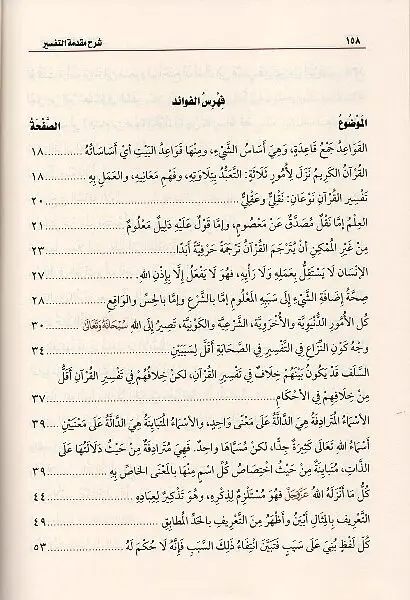 ١٥٨
شرح مقدمة التفسير
فِهْرِسُ الفَوائد
المَوْضُوعُ
الصَّفْحَةُ
القَوَاعِدُ جَمْعُ قَاعِدَةٍ، وَهِيَ أَسَاسُ الشَّيْءِ، وَمِنْهَا قَوَاعِدُ البَيْتِ أَيْ أَسَاسَاتُهُ ١٨
القُرْآنُ الكَرِيمُ نَزَلَ لِأُمُورٍ ثَلَاثَةٍ: التَّعَبُّدُ بِتِلَاوَتِهِ، وَفَهْمِ مَعَانِيهِ، والعَمَلِ بِهِ ١٨
تَفْسِيرُ القُرْآنِ نَوْعَانِ: نَقْلِيٌّ وَعَقْلِيٌّ ٢٠
العِلْمُ إِمَّا نَقْلٌ مُصَدَّقٌ عَنْ مَعْصُومٍ، وَإِمَّا قَوْلٌ عَلَيْهِ دَلِيلٌ مَعْلُومٌ ٢١
مِنْ غَيْرِ المُمْكِنِ أَنْ يُتَرْجَمَ القُرْآنُ تَرْجَمَةً حَرْفِيَّةً أَبَدًا ٢٣
الإِنْسَان لَا يَسْتَقِلُّ بِعَمَلِهِ وَلَا رَأْيِهِ، فَهُوَ لَا يَفْعَلُ إِلَّا بِإِذْنِ اللهِ. ٢٧
صِحَّةُ إِضَافَةِ الشَّيْءِ إِلَى سَبَبِهِ المَعْلُومِ إِمَّا بالشَّرْعِ وإِمَّا بالحِسِّ والوَاقِعِ ٢٨
كُلُّ الأُمُورِ الدُّنْيَوِيَّةِ والأُخْرَوِيَّةِ، الشَّرْعِيَّةِ والكَوْنِيَّةِ، تَصِيرُ إِلَى اللهِ سُبْحَانَهُ وَتَعَالَى ٣٠
وَجْهُ كَوْنِ النِّزَاعِ فِي التَّفْسِيرِ فِي الصَّحَابَةِ أَقَلَّ لِسَبَبَيْنِ ٣٤
السَّلَف قَدْ يَكُونُ بَيْنَهُمْ خِلَافٌ فِي تَفْسِيرِ القُرْآنِ، لكنْ خِلَافُهُمْ فِي تَفْسِيرِ القُرْآنِ أَقَلُّ
مِنْ خِلَافِهِمْ فِي الأَحْكَامِ ٣٧
الأَسْمَاءُ المُتَرَادِفَةُ هِيَ الدَّالَّةُ عَلَى مَعْنًى وَاحِدٍ، والأَسْمَاءُ المُتَبَايِنَةُ هِيَ الدَّالَّةُ عَلَى مَعْنَيَيْنِ ٣٩
أَسْمَاءُ اللهِ تَعَالَى كَثِيرَةٌ جِدًّا، لكنْ مُسَمَّاهَا وَاحِدٌ، فَهِيَ مُتَرَادِفَةٌ مِنْ حَيْثُ دَلَالَتُهَا عَلَى
الذَّاتِ، مُتَبَايِنَةٌ مِنْ حَيْثُ اخْتِصَاصُ كُلِّ اسْمٍ مِنْهَا بالمَعْنَى الخَاصِّ بِهِ ٣٩
كُلُّ مَا أَنْزَلَهُ اللهُ عَزَّوَجَلَّ فَهُوَ مُسْتَلْزِمٌ لِذِكْرِهِ، وَهُوَ تَذْكِيرٌ لِعِبَادِهِ ٤٤
التَّعْرِيف بِالمِثَالِ أَبْيَنُ وَأَظْهَرُ مِنَ التَّعْرِيفِ بِالحَدِّ المُطَابِقِ ٤٩
كُلُّ لَفْظٍ بُنِيَ عَلَى سَبَبٍ فَتَبَيَّنَ انْتِفَاءُ ذَلِكَ السَّبَبِ فَإِنَّهُ لَا حُكْمَ لَهُ ٥٣